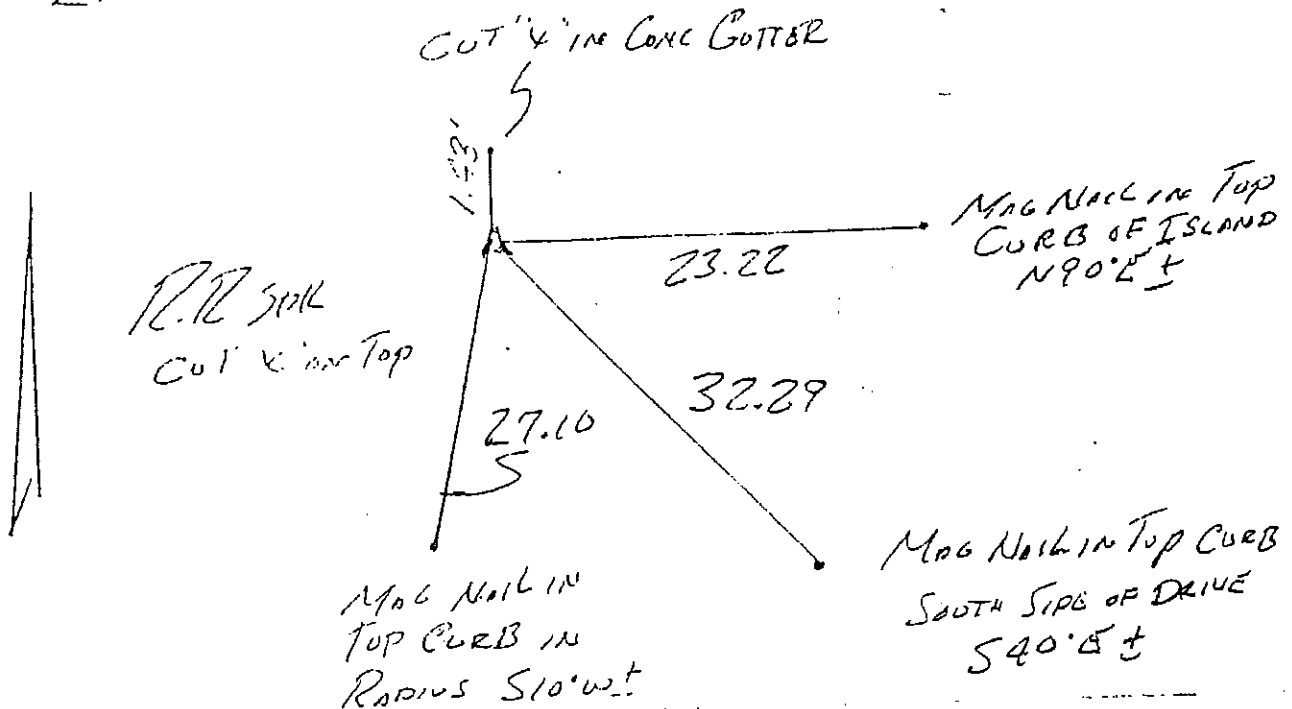 CUT "X" IN CONC GUTTER
MAG NAIL IN TOP
CURB OF ISLAND
N90°E ±
23.22
R.R SPIK
CUT 'X' ON TOP
27.10
32.29
MAG NAIL IN
TOP CURB IN
RADIUS S10°W±
MAG NAIL IN TOP CURB
SOUTH SIDE OF DRIVE
S40°E ±